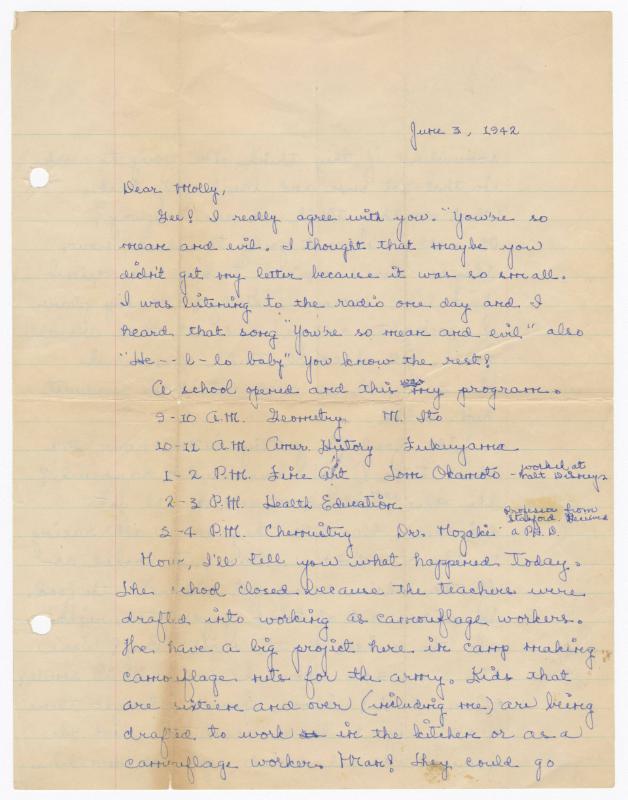 June 3, 1942
Dear Molly,
Gee! I really agree with you. "You're so
mean and evil. I thought that maybe you
didn't get my letter because it was so small.
I was listening to the radio one day and I
heard that song "You're so mean and evil" also
"He--l-lo baby" You know the rest?
A school opened and this was my program.
9-10 A.M. Geometry M. Ito
10-11 A.M. Amer. History Fukuyama
1-2 P.M. Fine Art Tom Okamoto - worked at Walt Disneys
2-3 P.M. Health Education
3-4 P.M. Chemistry Dr. Nozaki Professor from Stanford. Received a PH.D.
Now, I'll tell you what happened today.
The school closed because the teachers were
drafted into working as camouflage workers.
We have a big project here in camp making
camouflage nets for the army. Kids that
are sixteen and over (including me) are being
drafted to work in the kitchen or as a
camouflage worker. Man! They could go